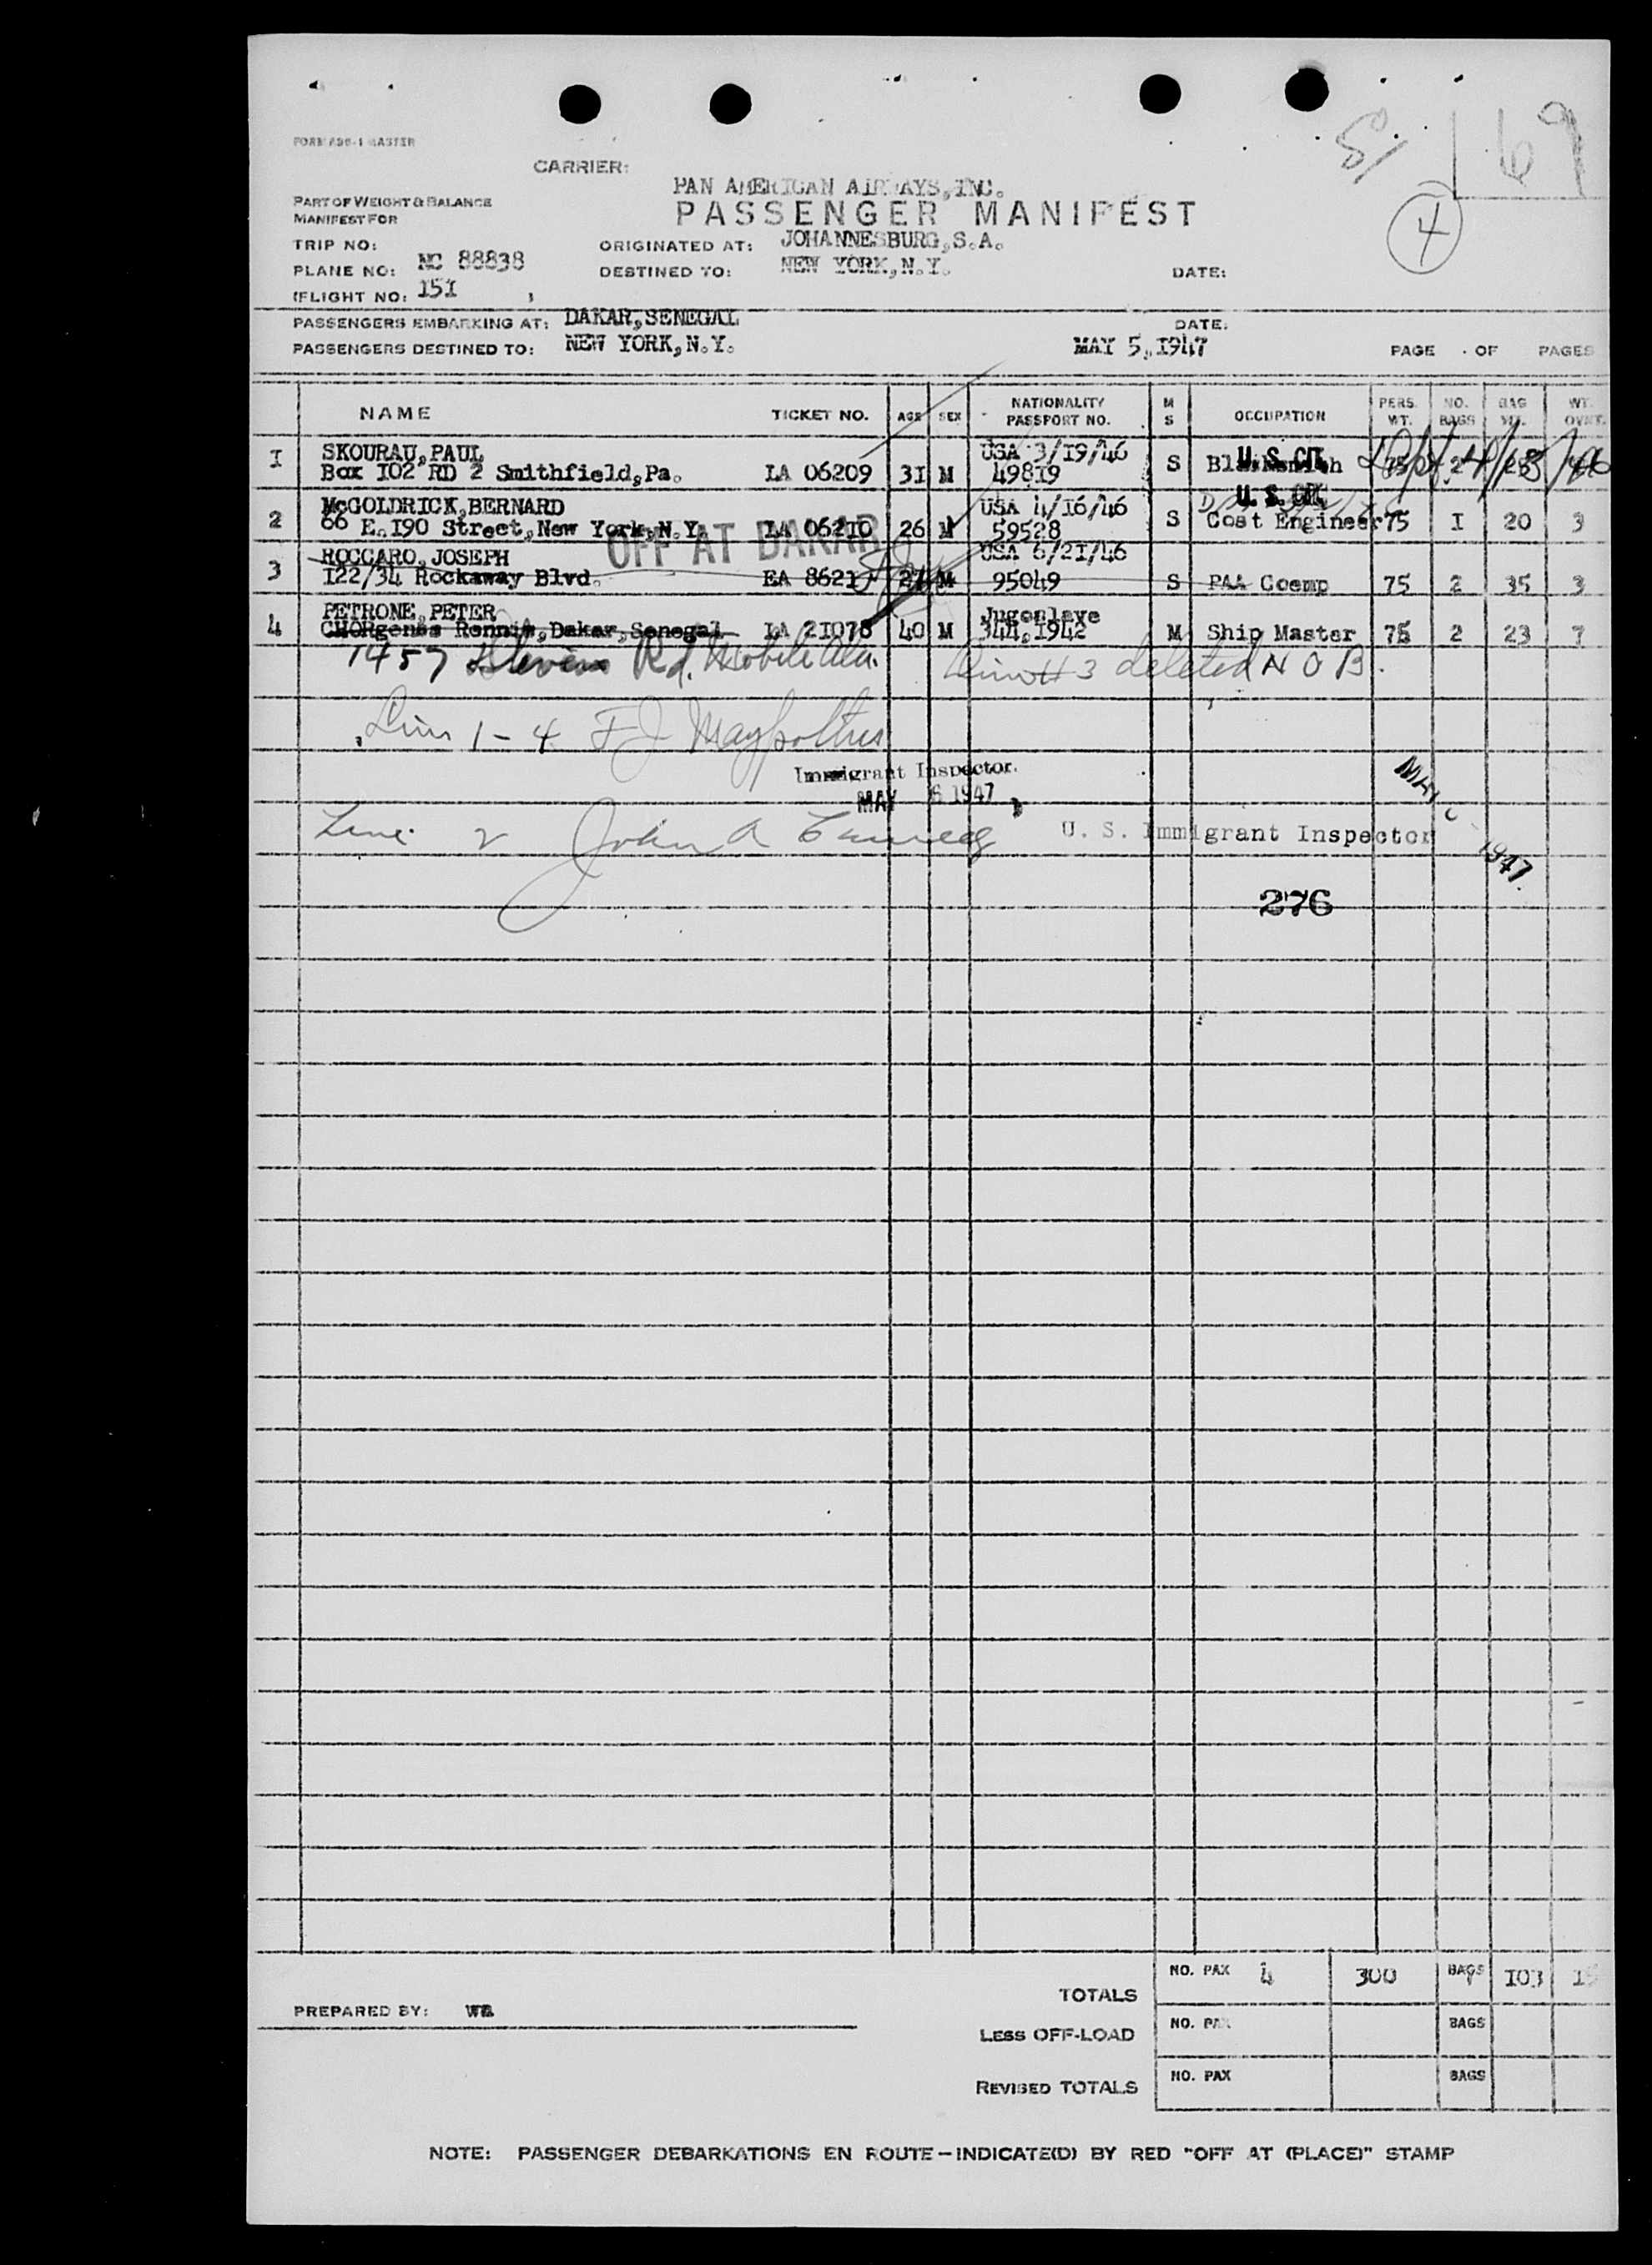 FORM ADO-1 MASTER
51 69
CARRIER:
PAN AMERICAN AIRWAYS, INC.
PART OF WEIGHT & BALANCE
MANIFEST FOR
PASSENGER MANIFEST
4
TRIP NO:
ORIGINATED AT: JOHANNESBURG, S.A.
PLANE NO: NC 88838
DESTINED TO: NEW YORK, N.Y.
DATE:
FLIGHT NO: 151
PASSENGERS EMBARKING AT: DAKAR, SENEGAL
DATE:
PASSENGERS DESTINED TO: NEW YORK, N.Y. MAY 5, 1947 PAGE OF PAGES
NAME TICKET NO. AGE SEX NATIONALITY PASSPORT NO. M S OCCUPATION PERS. WT. NO. BAGS BAG WT. WT. OVNT.
1 SKOURAU, PAUL USA 3/19/46 U.S. CIT.
Box 102 RD 2 Smithfield, Pa. LA 06209 31 M 49819 S Blacksmith 75 2
2 McGOLDRICK, BERNARD USA 4/16/46 U.S. CIT.
66 E. 190 Street, New York, N.Y. LA 06210 26 M 59528 S Cost Engineer 75 1 20 3
OFF AT DAKAR
3 ROCCARO, JOSEPH USA 6/21/46
122/34 Rockaway Blvd. EA 8621 27 M 95049 S PAA Coemp 75 2 35 3
4 PETRONE, PETER Jugoslave
CHORgenes Rennis, Dakar, Senegal LA 21078 40 M 344, 1942 M Ship Master 75 2 23 7
1457 Rd. Mobile Ala. Line #3 deleted N O B.
Line 1-4 F J
Immigrant Inspector.
MAY 6 1947
Line 2 John A
U. S. Immigrant Inspector
MAY 6 1947
276
TOTALS NO. PAX 4 300 BAGS 7 103
PREPARED BY: WB
LESS OFF-LOAD NO. PAX BAGS
REVISED TOTALS NO. PAX BAGS
NOTE: PASSENGER DEBARKATIONS EN ROUTE—INDICATE(D) BY RED "OFF AT (PLACE)" STAMP